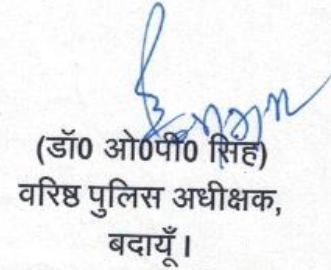 (डॉ0 ओ0पी0 सिंह)
वरिष्ठ पुलिस अधीक्षक,
बदायूँ।